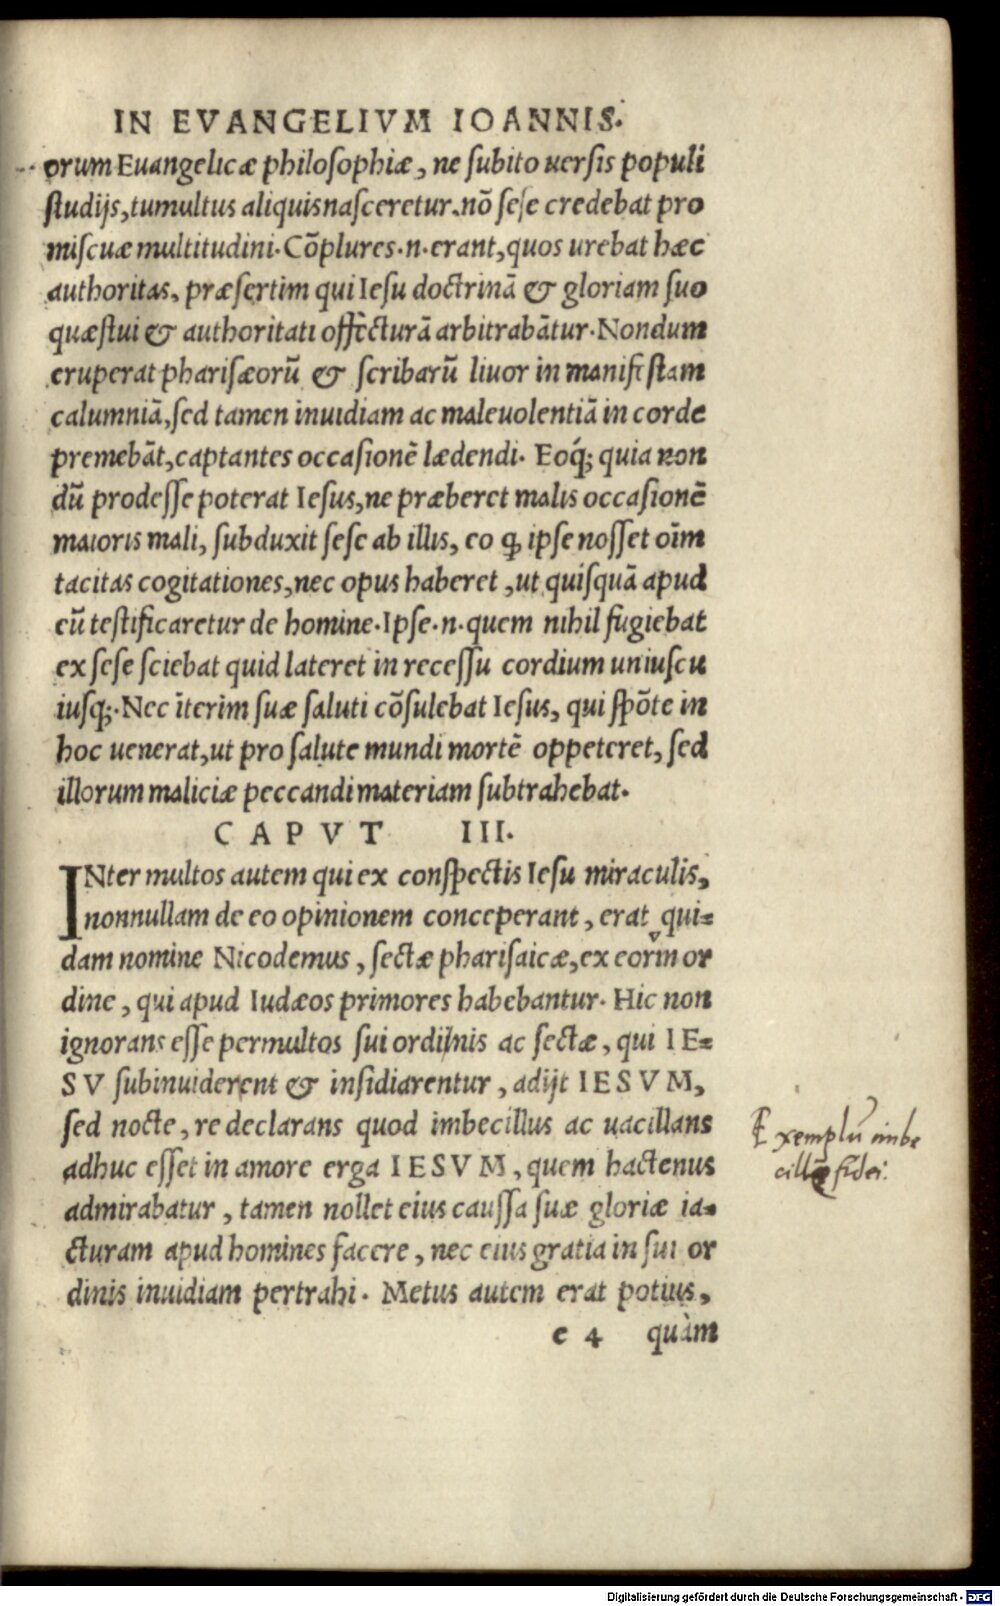 IN EVANGELIVM IOANNIS.
orum Euangelicæ philosophiæ, ne subito uersis populi
studijs, tumultus aliquis nasceretur. nō sese credebat pro
miscuæ multitudini. Cōplures .n. erant, quos urebat hæc
authoritas, præsertim qui Iesu doctrinā & gloriam suo
quæstui & authoritati offecturā arbitrabātur. Nondum
eruperat pharisæorū & scribarū liuor in manifestam
calumniā, sed tamen inuidiam ac maleuolentiā in corde
premebāt, captantes occasionē lædendi. Eoq́; quia non
dū prodesse poterat Iesus, ne præberet malis occasionē
maioris mali, subduxit sese ab illis, eo ꝙ ipse nosset oīm
tacitas cogitationes, nec opus haberet, ut quisquā apud
eū testificaretur de homine. Ipse .n. quem nihil fugiebat
ex sese sciebat quid lateret in recessu cordium uniuscu
iusq;. Nec īterim suæ saluti cōsulebat Iesus, qui spōte in
hoc uenerat, ut pro salute mundi mortē oppeteret, sed
illorum maliciæ peccandi materiam subtrahebat.
CAPVT III.
INter multos autem qui ex conspectis Iesu miraculis,
nonnullam de eo opinionem conceperant, erat qui-
dam nomine Nicodemus, sectæ pharisaicæ, ex eorum or
dine, qui apud Iudæos primores habebantur. Hic non
ignorans esse permultos sui ordinis ac sectæ, qui IE-
SV subinuiderent & insidiarentur, adijt IESVM,
sed nocte, re declarans quod imbecillus ac uacillans
adhuc esset in amore erga IESVM, quem hactenus
admirabatur, tamen nollet eius caussa suæ gloriæ ia-
cturam apud homines facere, nec eius gratia in sui or
dinis inuidiam pertrahi. Metus autem erat potius,
e 4 quàm
Exemplū imbe
cillę fidei:
Digitalisierung gefördert durch die Deutsche Forschungsgemeinschaft - DFG